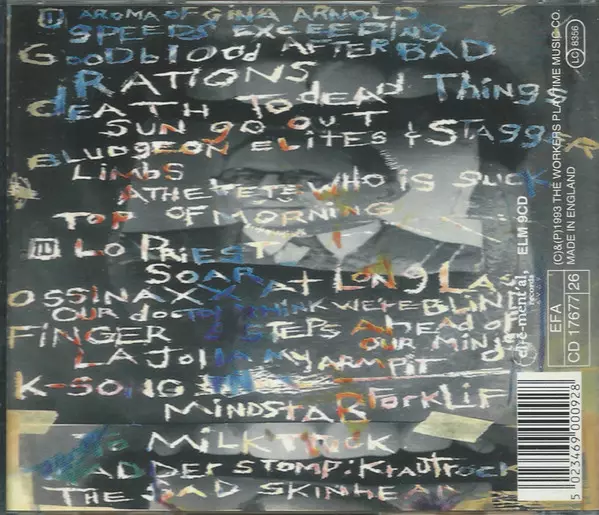 AROMA OF GINA ARNOLD
SPEERS EXCEEPING
GOODBLOOD AFTER BAD
RATIONS
DEATH TO DEAD THINGS
SUN GO OUT
BLUDGEON ELITES & STAGG
LIMBS
ATHELETE WHO IS SUCK
TOP OF MORNING
LO PRIEST
SOAR AT LONG LA
OSSINAXX
OUR DOCTR THINK WE'RE BLIN
FINGER 2 STEPS AHEAD OF
OUR MIND
LA JOLLA MY ARMPIT
K-SONG
FORKLIF
MINDSTAR
MILKTRUCK
LADDER STOMP: KRAUTROCK
THE BAD SKINHEAD
(C)&(P)1993 THE WORKERS PLAYTIME MUSIC CO.
MADE IN ENGLAND
LC 8356
ELM 9CD
el-e-mental,
records
EFA
CD 17677 26
5 023469 000928